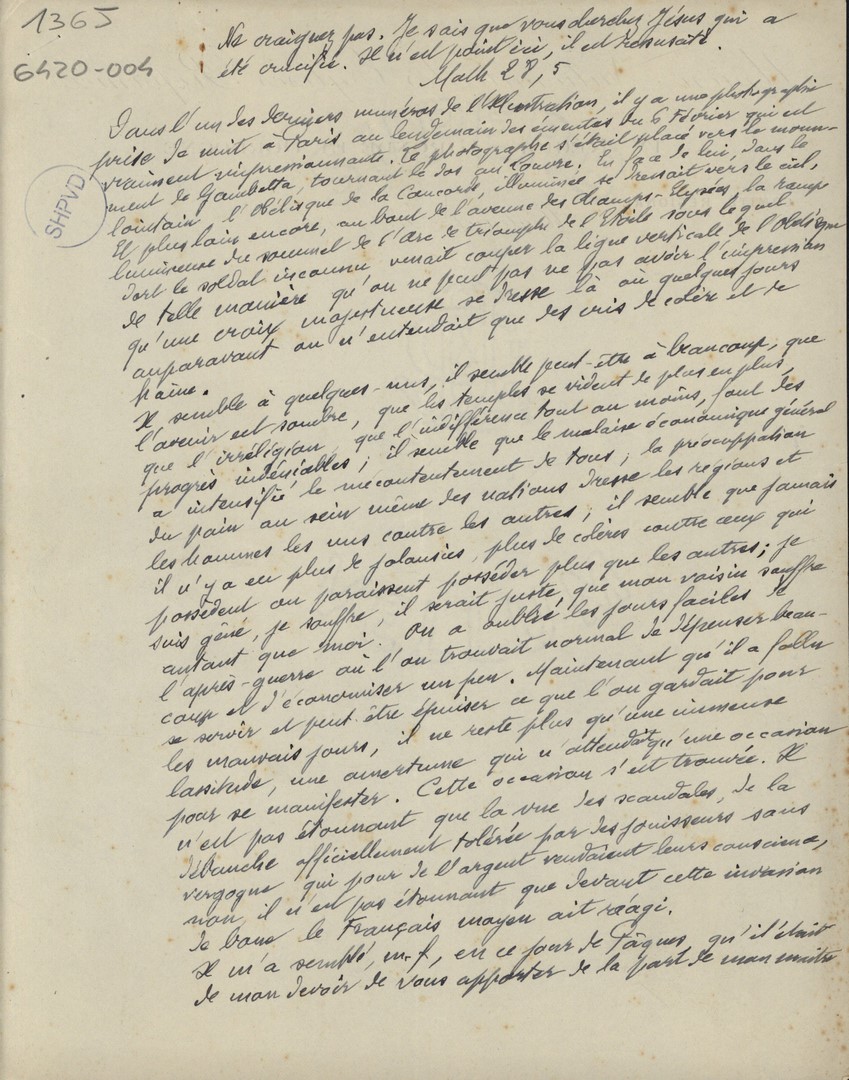 1365
6420-004
SHPVD
Ne craignez pas. Je sais que vous cherchez Jésus qui a
été crucifié. Il n'est point ici, il est ressuscité.
Math 28, 5
Dans l'un des derniers numéros de l'Illustration, il y a une photographie
prise de nuit à Paris au lendemain des émeutes du 6 Février qui est
vraiment impressionnante. Le photographe s'était placé vers le monu-
ment de Gambetta, tournant le dos au Louvre. En face de lui, dans le
lointain l'Obélisque de la Concorde, illuminée se dressait vers le ciel.
Et plus loin encore, au bout de l'avenue des Champs-Elysées, la rampe
lumineuse du sommet de l'Arc de triomphe de l'Etoile sous lequel
dort le soldat inconnu venait couper la ligne verticale de l'Obélisque
de telle manière qu'on ne peut pas ne pas avoir l'impression
qu'une croix majestueuse se dresse là où quelques jours
auparavant on n'entendait que des cris de colère et de
haine.
Il semble à quelques-uns, il semble peut-être à beaucoup, que
l'avenir est sombre, que les temples se vident de plus en plus,
que l'irréligion, que l'indifférence tout au moins, font des
progrès indéniables ; il semble que le malaise économique général
a intensifié le mécontentement de tous ; la préoccupation
du pain au sein même des nations dresse les régions et
les hommes les uns contre les autres ; il semble que jamais
il n'y a eu plus de jalousies, plus de colères contre ceux qui
possèdent ou paraissent posséder plus que les autres ; je
suis gêné, je souffre, il serait juste, que mon voisin souffre
autant que moi. On a oublié les jours faciles de
l'après-guerre où l'on trouvait normal de dépenser beau-
coup et d'économiser un peu. Maintenant qu'il a fallu
se servir et peut-être épuiser ce que l'on gardait pour
les mauvais jours, il ne reste plus qu'une immense
lassitude, une amertume qui n'attendait qu'une occasion
pour se manifester. Cette occasion s'est trouvée. Il
n'est pas étonnant que la vue des scandales, de la
débauche officiellement tolérée par des jouisseurs sans
vergogne qui pour de l'argent vendaient leurs conscience,
non, il n'en pas étonnant que devant cette invasion
de boue le Français moyen ait réagi.
Il m'a semblé, m.f, en ce jour de Pâques qu'il était
de mon devoir de vous apporter de la part de mon maitre